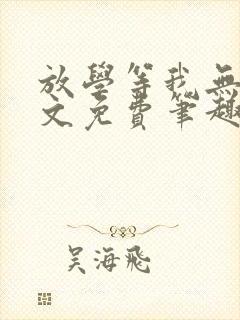 放學等我無
文免費筆趣
吳海飛